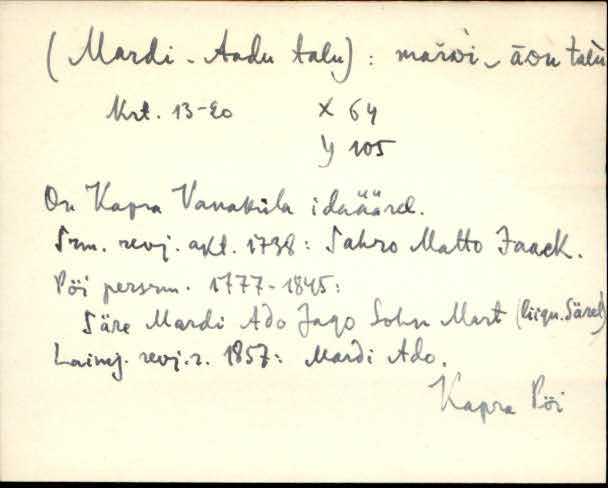 (Mardi-Aadu talu): marði-āðu talù
Krt. 13-20 X 64
Y 105
On Kapra Vanaküla idaäärel.
Srm. revj. akt. 1738: Sahro Matto Jaack.
Pöi persrm. 1777-1845:
Säre Mardi Ado Jago Sohn Mart (liigu. Särel)
revj. r. 1857: Mardi Ado.
Kapra Pöi